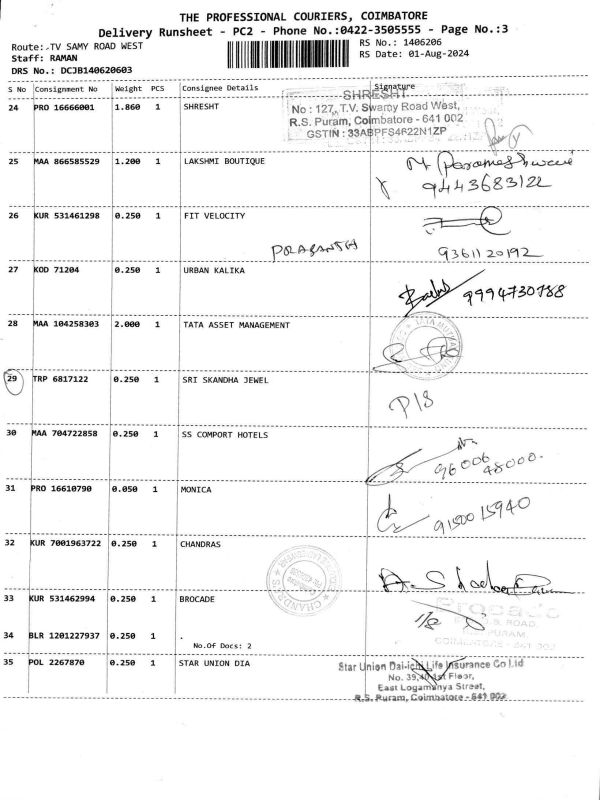 THE PROFESSIONAL COURIERS, COIMBATORE
Delivery Runsheet - PC2 - Phone No.:0422-3505555 - Page No.:3
Route: TV SAMY ROAD WEST
RS No.: 1406206
Staff: RAMAN
RS Date: 01-Aug-2024
DRS No.: DCJB140620603
S No Consignment No Weight PCS Consignee Details Signature
24 PRO 16666001 1.860 1 SHRESHT
SHRESHT
No : 127, T.V. Swamy Road West,
R.S. Puram, Coimbatore - 641 002
GSTIN : 33ABPFS4622N1ZP
25 MAA 866585529 1.200 1 LAKSHMI BOUTIQUE
M Parameshwari
9443683122
26 KUR 531461298 0.250 1 FIT VELOCITY
PRASANTH 9361120192
27 KOD 71204 0.250 1 URBAN KALIKA
9994730788
28 MAA 104258303 2.000 1 TATA ASSET MANAGEMENT
29 TRP 6817122 0.250 1 SRI SKANDHA JEWEL
P18
30 MAA 704722858 0.250 1 SS COMPORT HOTELS
96006 48000.
31 PRO 16610790 0.050 1 MONICA
9150015940
32 KUR 7001963722 0.250 1 CHANDRAS
33 KUR 531462994 0.250 1 BROCADE
Brocade
R.S. PURAM,
COIMBATORE - 641 002
34 BLR 1201227937 0.250 1 .
No.Of Docs: 2
35 POL 2267870 0.250 1 STAR UNION DIA
Star Union Dai-ichi Life Insurance Co Ltd
No. 39,40 1st Floor,
East Logamanya Street,
R.S. Puram, Coimbatore - 641 002